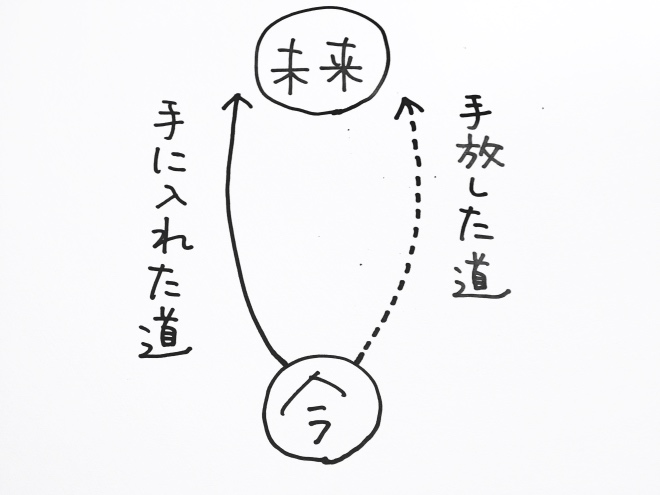 未来
手に入れた道
手放した道
今